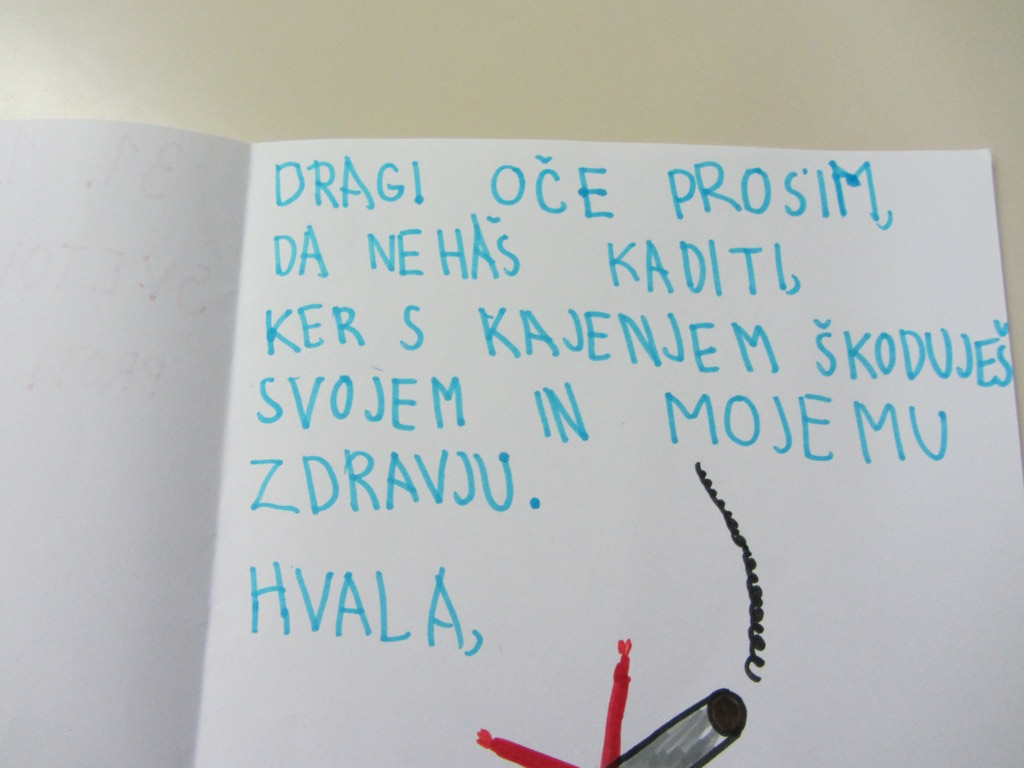 DRAGI OČE PROSIM,
DA NEHAŠ KADITI,
KER S KAJENJEM ŠKODUJEŠ
SVOJEM IN MOJEMU
ZDRAVJU.
HVALA,